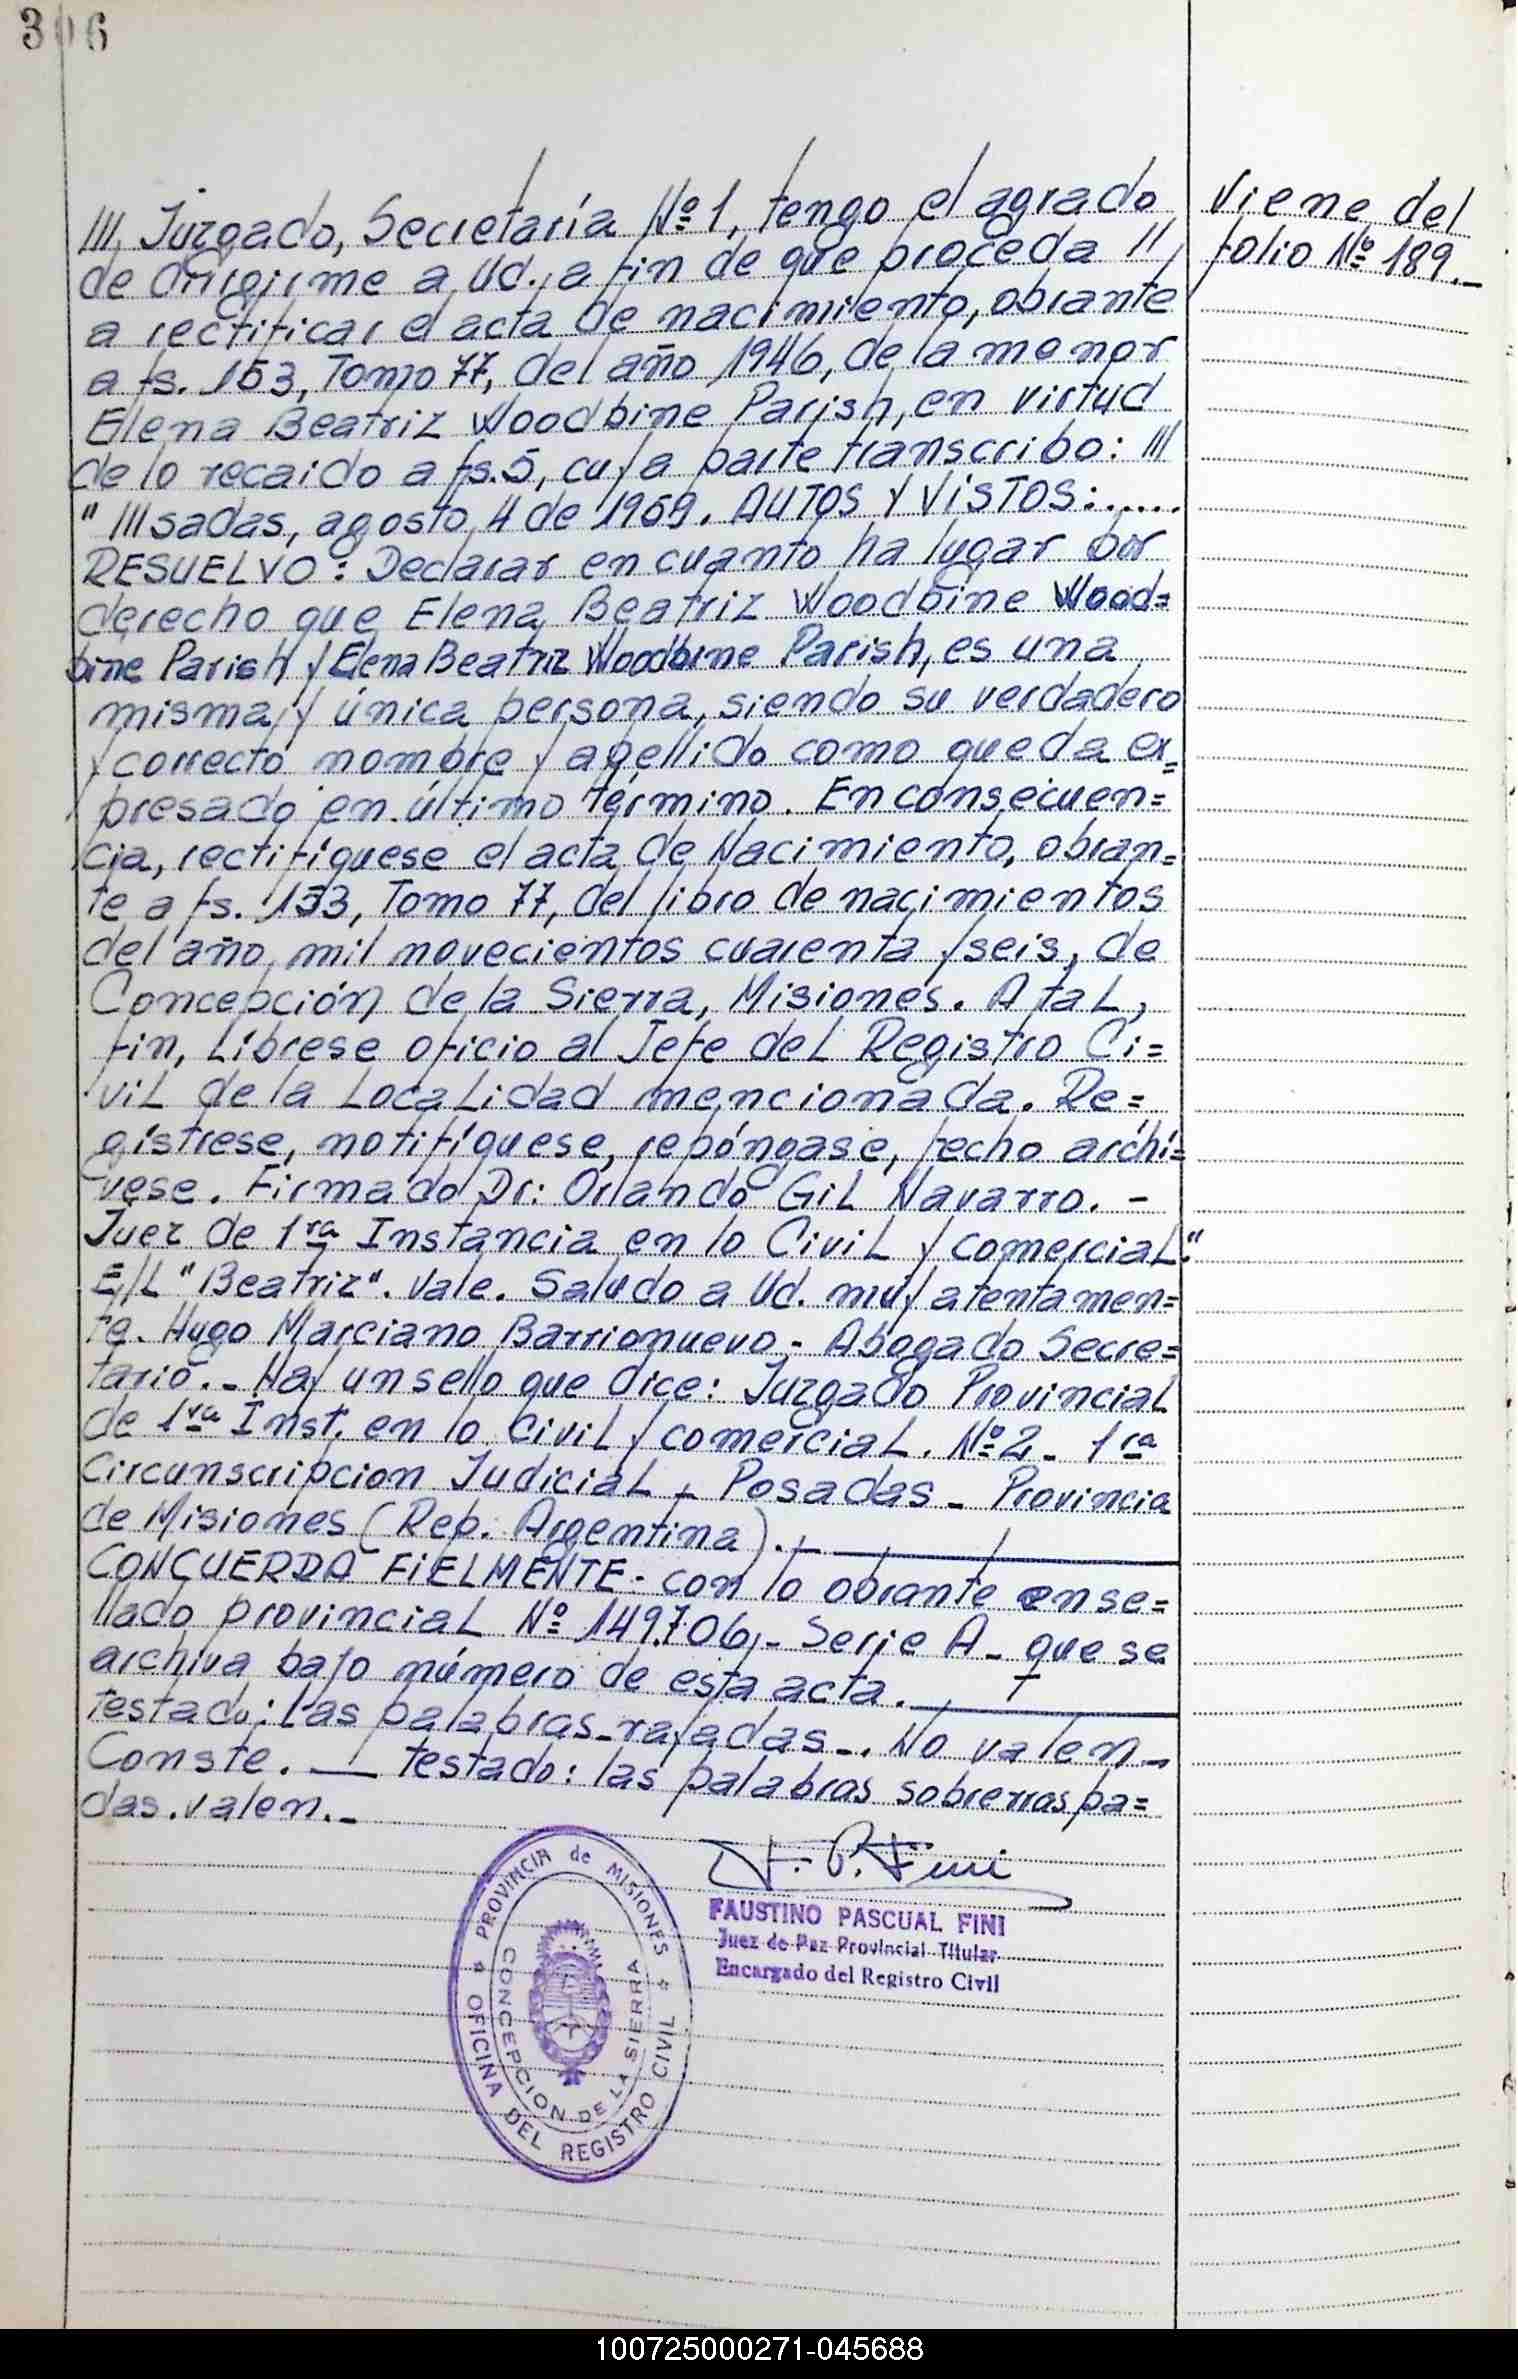 306
Viene del
folio Nº 189.-
/// Juzgado, Secretaría Nº 1, tengo el agrado
de dirigirme a Ud., a fin de que proceda //
a rectificar el acta de nacimiento, obrante
a fs. 153, Tomo 77, del año 1946, de la menor
Elena Beatriz Woodbine Parish, en virtud
de lo recaido a fs. 5, cuya parte transcribo: ///
" /// sadas, agosto 4 de 1959. AUTOS Y VISTOS:.....
RESUELVO: Declarar en cuanto ha lugar por
derecho que Elena Beatriz Woodbine Wood=
bine Parish y Elena Beatriz Woodbine Parish, es una
misma y única persona, siendo su verdadero
y correcto nombre y apellido como queda ex=
presado en último término. En consecuen=
cia, rectifíquese el acta de Nacimiento, obran=
te a fs. 153, Tomo 77, del libro de nacimientos
del año mil novecientos cuarenta y seis, de
Concepción de la Sierra, Misiones. A tal
fin, Líbrese oficio al Jefe del Registro Ci=
vil de la Localidad mencionada. Re=
gístrese, notifíquese, repóngase, fecho archí=
vese. Firmado Dr: Orlando Gil Navarro. -
Juez de 1ra Instancia en lo Civil y comercial."
E/L "Beatriz". Vale. Saludo a Ud. muy atentamen=
te. Hugo Marciano Barrionuevo - Abogado Secre=
tario.- Hay un sello que dice: Juzgado Provincial
de 1ra Inst. en lo Civil y comercial. Nº 2 - 1ra
Circunscripcion Judicial - Posadas - Provincia
de Misiones (Rep. Argentina).-
CONCUERDA FIELMENTE - con lo obrante en se=
llado provincial Nº 149.706,- Serie A - que se
archiva bajo número de esta acta.
testado: las palabras rayadas-. No valen-
Conste. — testado: las palabras sobrerraspa=
das. valen.-
F. P. Fini
FAUSTINO PASCUAL FINI
Juez de Paz Provincial Titular
Encargado del Registro Civil
PROVINCIA de MISIONES
OFICINA DEL REGISTRO CIVIL
CONCEPCION DE LA SIERRA
100725000271-045688